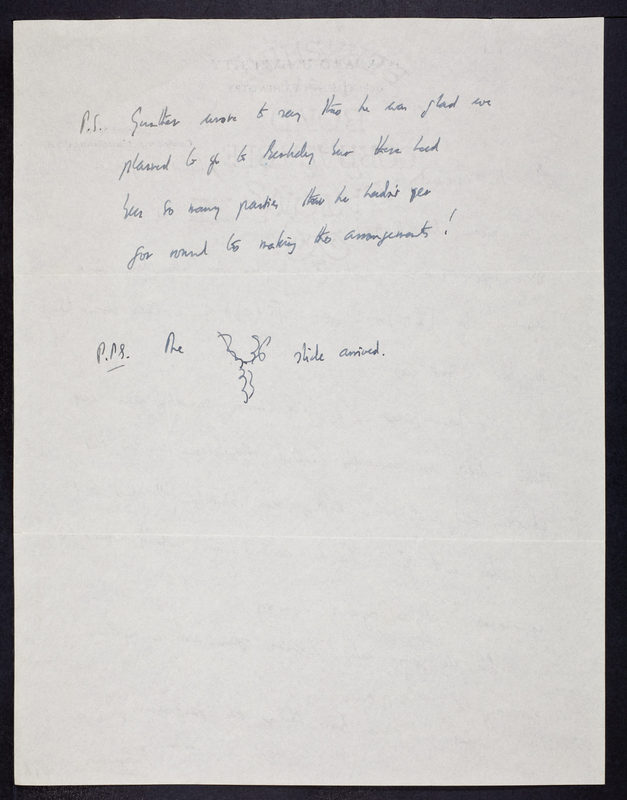 P.S. Gunther wrote to say that he was glad we
planned to go to Berkeley but there had
been so many parties that he hadn't yet
got round to making the arrangements!
P.P.S. The slide arrived.